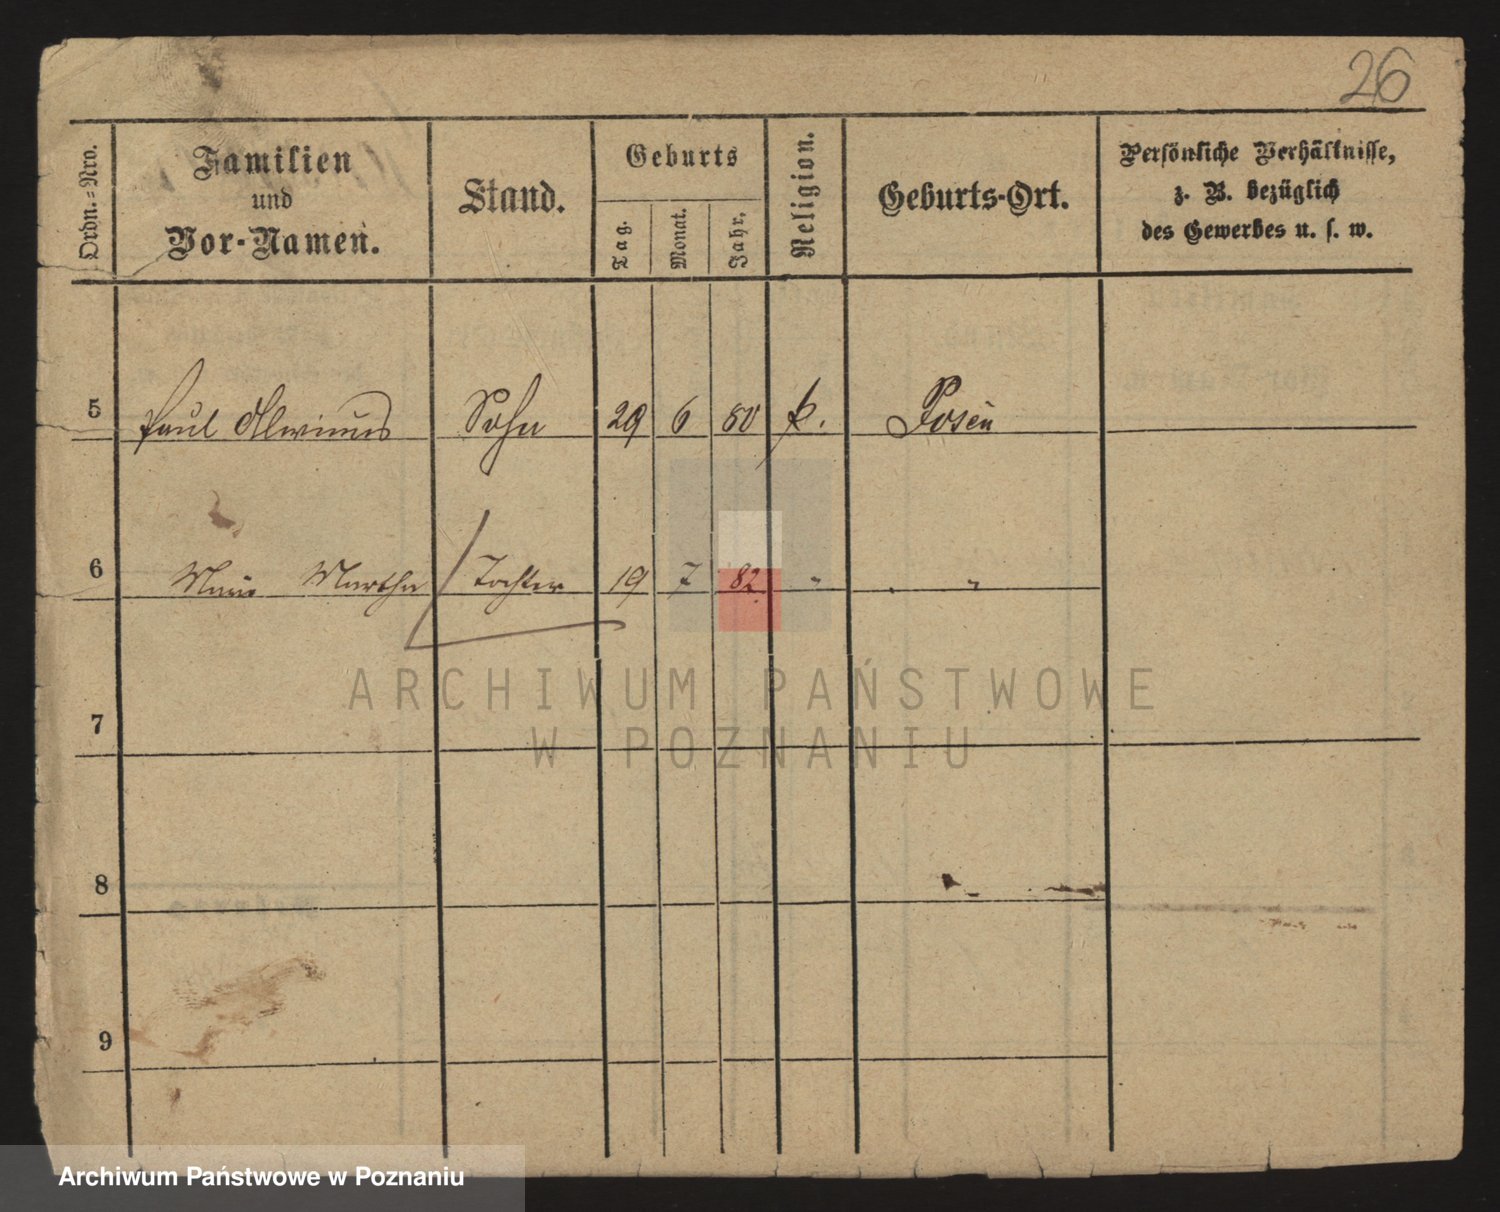 26
Ordn.-Nro.
Familien
und
Vor-Namen.
Stand.
Geburts
Tag.
Monat.
Jahr.
Religion.
Geburts-Ort.
Persönliche Verhältnisse,
z. B. bezüglich
des Gewerbes u. s. w.
5 Paul Alwinus Sohn 29 6 80 k. Posen
6 Marie Martha Tochter 19 7 82 " "
7
8
9
ARCHIWUM PAŃSTWOWE
W POZNANIU
Archiwum Państwowe w Poznaniu